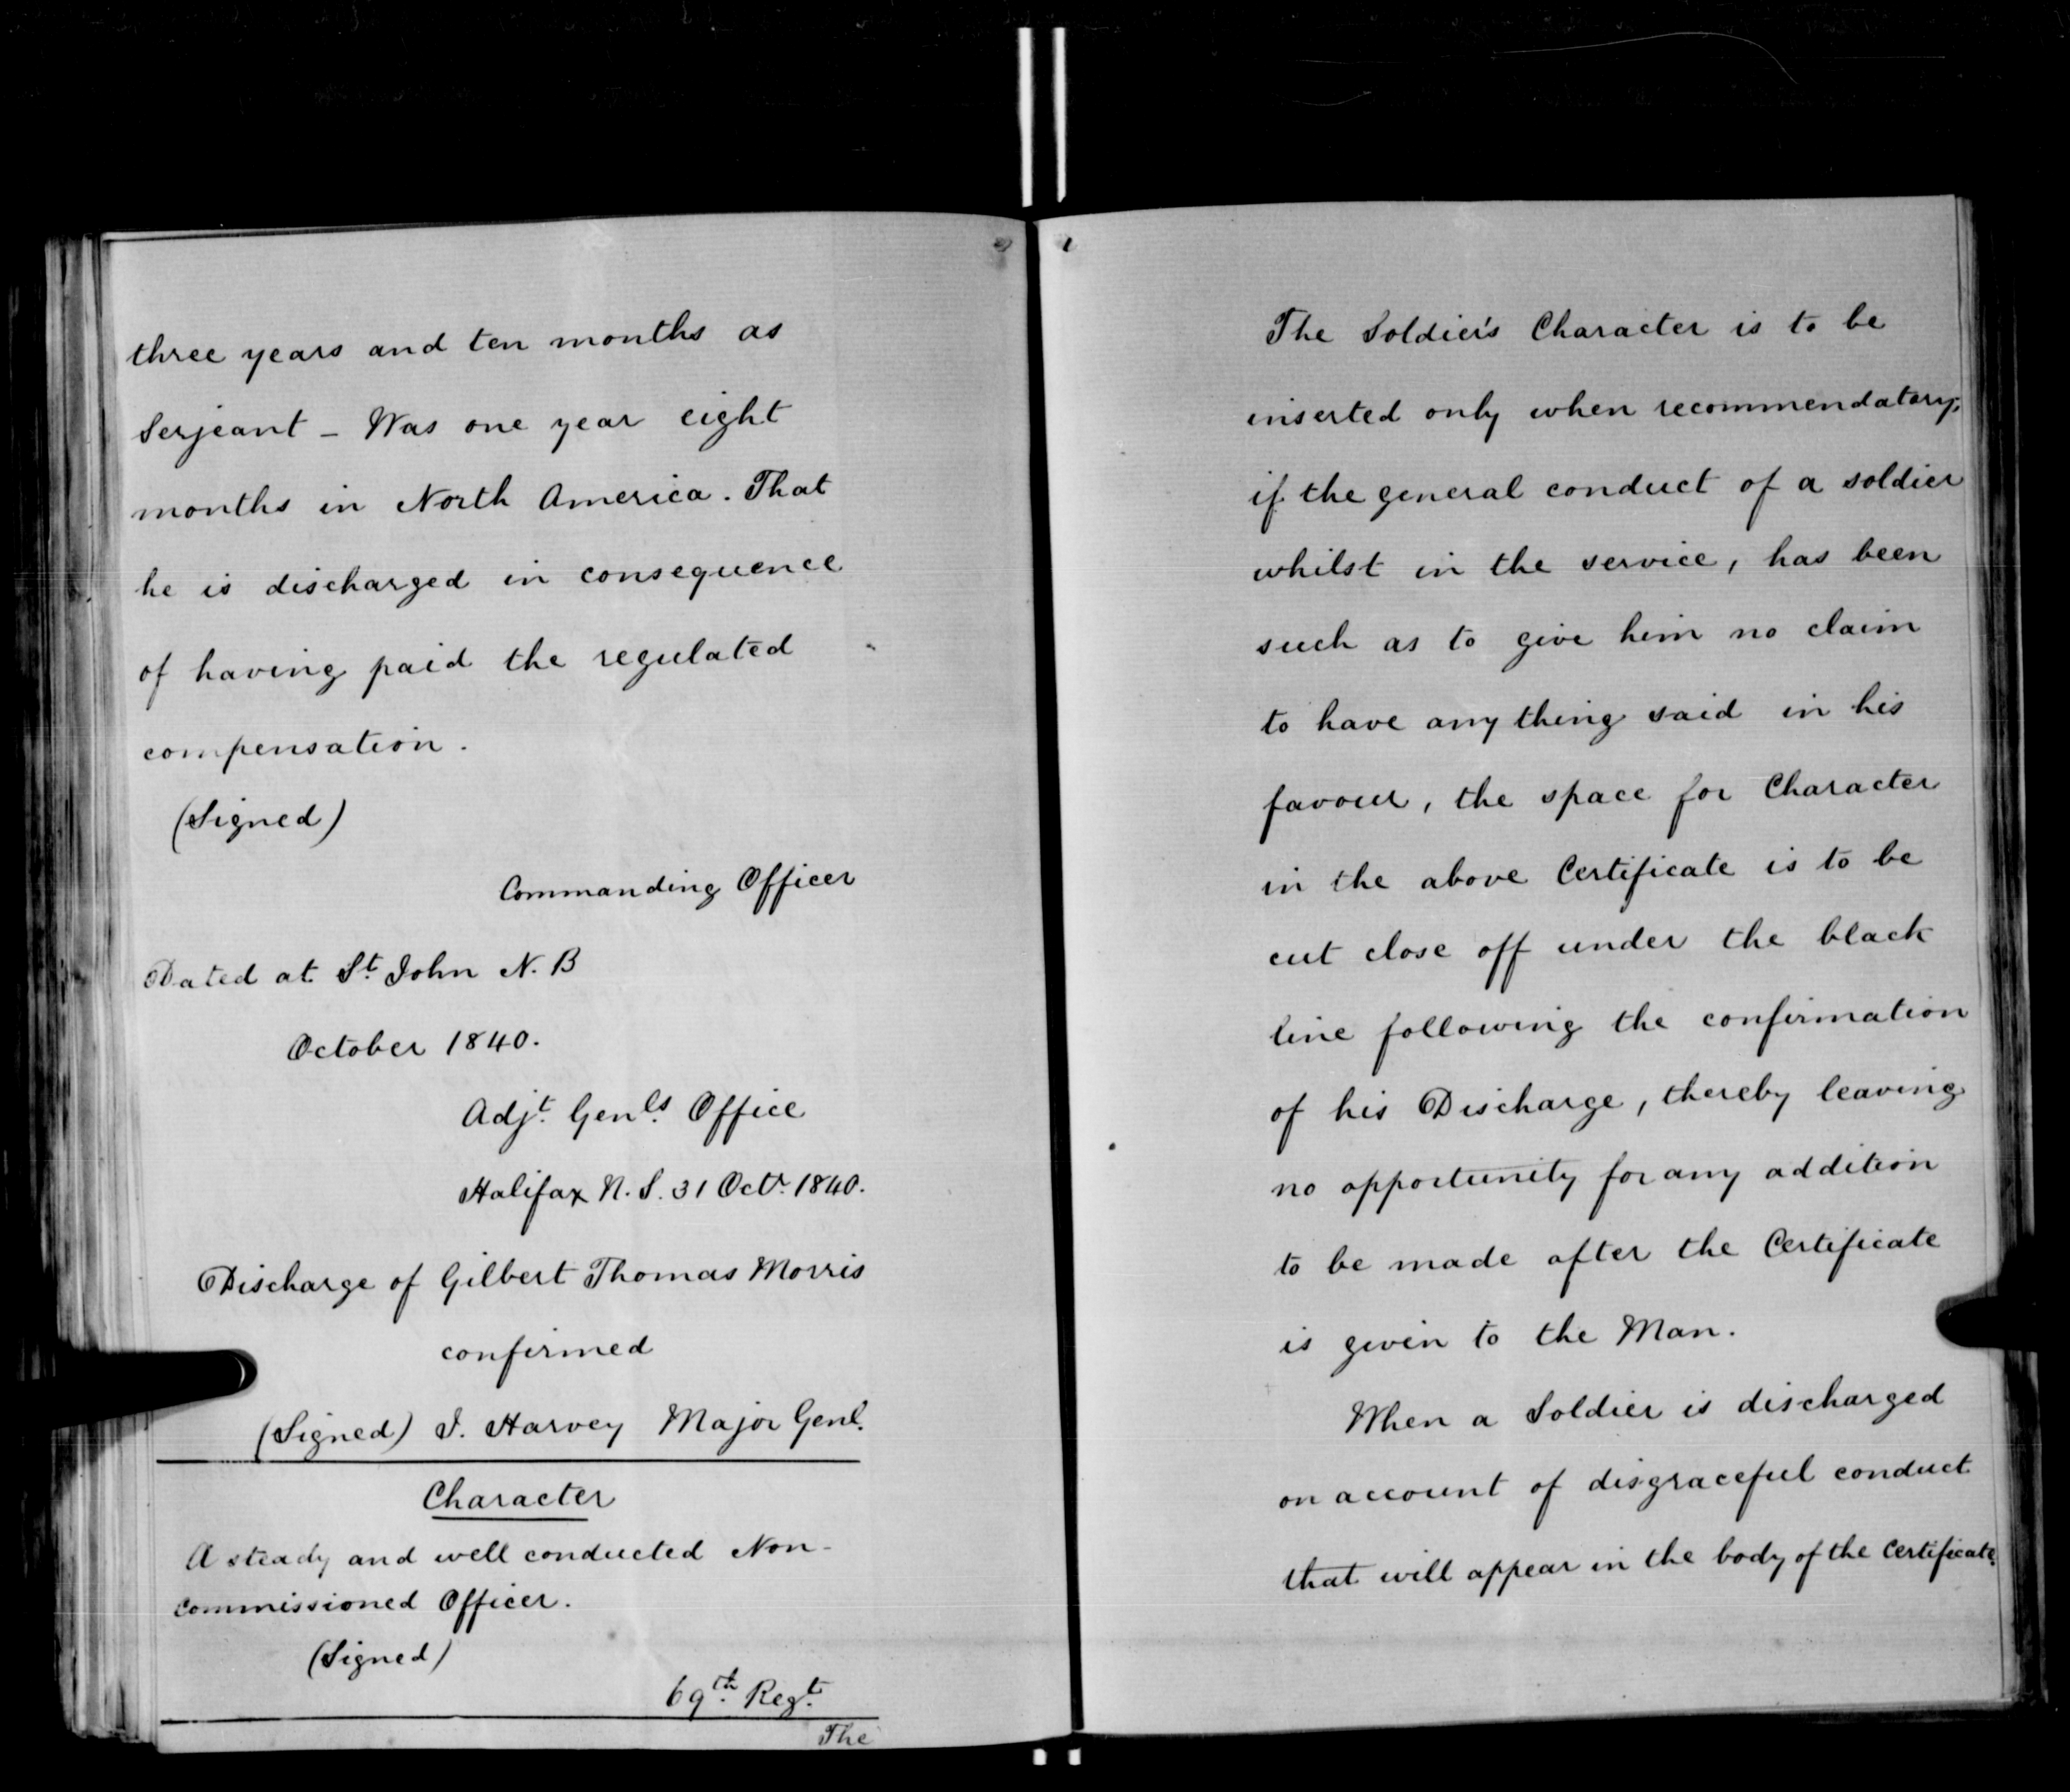 three years and ten months as
Serjeant - Was one year eight
months in North America. That
he is discharged in consequence
of having paid the regulated
compensation.
(Signed)
Commanding Officer
Dated at St. John N. B
October 1840.
Adjt. Genls. Office
Halifax N. S. 31 Octr. 1840.
Discharge of Gilbert Thomas Morris
confirmed
(Signed) J. Harvey Major Genl.
Character
A steady and well conducted Non-
commissioned Officer.
(Signed)
69th. Regt.
The
The Soldier's Character is to be
inserted only when recommendatory;
if the general conduct of a soldier
whilst in the service, has been
such as to give him no claim
to have any thing said in his
favour, the space for Character
in the above Certificate is to be
cut close off under the black
line following the confirmation
of his Discharge, thereby leaving
no opportunity for any addition
to be made after the Certificate
is given to the Man.
When a Soldier is discharged
on account of disgraceful conduct
that will appear in the body of the Certificate.